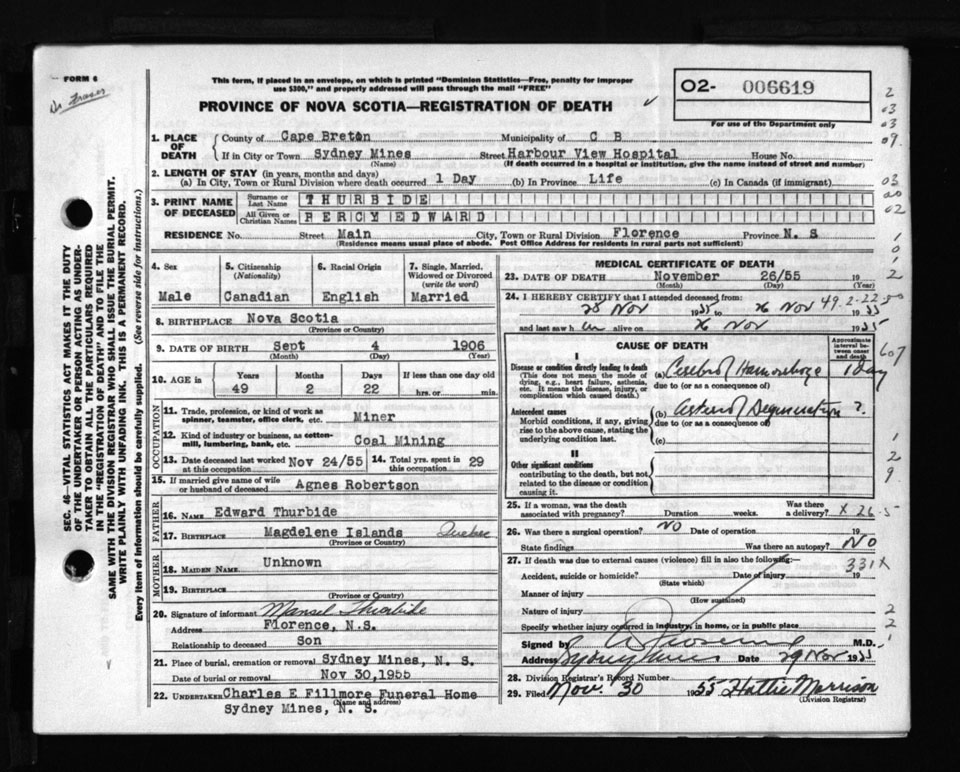 FORM 6
Dr Fraser
This form, if placed in an envelope, on which is printed "Dominion Statistics—Free, penalty for improper
use $300," and properly addressed will pass through the mail "FREE"
PROVINCE OF NOVA SCOTIA—REGISTRATION OF DEATH
O2- 006619
For use of the Department only
1. PLACE OF DEATH County of Cape Breton Municipality of C B
If in City or Town Sydney Mines Street Harbour View Hospital House No.
(Name) (If death occurred in a hospital or institution, give the name instead of street and number)
2. LENGTH OF STAY (in years, months and days)
(a) In City, Town or Rural Division where death occurred 1 Day (b) In Province Life (c) In Canada (if immigrant)
3. PRINT NAME OF DECEASED Surname or Last Name THURBIDE
All Given or Christian Names PERCY EDWARD
RESIDENCE No. Street Main City, Town or Rural Division Florence Province N. S
(Residence means usual place of abode. Post Office Address for residents in rural parts not sufficient)
4. Sex Male
5. Citizenship (Nationality) Canadian
6. Racial Origin English
7. Single, Married, Widowed or Divorced (write the word) Married
8. BIRTHPLACE Nova Scotia
(Province or Country)
9. DATE OF BIRTH Sept 4 1906
(Month) (Day) (Year)
10. AGE in Years 49 Months 2 Days 22 If less than one day old hrs. or min.
OCCUPATION
11. Trade, profession, or kind of work as spinner, teamster, office clerk, etc. Miner
12. Kind of industry or business, as cotton-mill, lumbering, bank, etc. Coal Mining
13. Date deceased last worked at this occupation Nov 24/55 14. Total yrs. spent in this occupation 29
15. If married give name of wife or husband of deceased Agnes Robertson
FATHER
16. NAME Edward Thurbide
17. BIRTHPLACE Magdelene Islands Quebec
(Province or Country)
MOTHER
18. MAIDEN NAME Unknown
19. BIRTHPLACE
(Province or Country)
20. Signature of informant Mansel Thurbide
Address Florence, N.S.
Relationship to deceased Son
21. Place of burial, cremation or removal Sydney Mines, N. S.
Date of burial or removal Nov 30,1955
22. UNDERTAKER Charles E Fillmore Funeral Home
(Name and address)
Sydney Mines, N. S.
MEDICAL CERTIFICATE OF DEATH
23. DATE OF DEATH November 26/55 19
(Month) (Day) (Year)
24. I HEREBY CERTIFY that I attended deceased from: 49.2-22.50
28 Nov 1955 to 26 Nov 1955
and last saw h im alive on 26 Nov 1955
CAUSE OF DEATH
Approximate interval between onset and death
I
Disease or condition directly leading to death (a) Cerebral Hamorrhage 1 Day
(This does not mean the mode of dying, e.g., heart failure, asthenia, etc. It means the disease, injury, or complication which caused death.)
due to (or as a consequence of)
Antecedent causes (b) Arterial Degeneration ?
Morbid conditions, if any, giving rise to the above cause, stating the underlying condition last.
due to (or as a consequence of)
(c)
II
Other significant conditions
contributing to the death, but not related to the disease or condition causing it.
25. If a woman, was the death associated with pregnancy? Duration weeks. Was there a delivery? X 26-5
26. Was there a surgical operation? NO Date of operation 19
State findings Was there an autopsy? NO
27. If death was due to external causes (violence) fill in also the following: 331X
Accident, suicide or homicide? Date of injury 19
(State which)
Manner of injury
(How sustained)
Nature of injury
Specify whether injury occurred in industry, in home, or in public place
Signed by M.D.
Address Sydney Mines Date 29 Nov 1955
28. Division Registrar's Record Number
29. Filed Nov. 30 1955 Hattie Morrison
(Division Registrar)
SEC. 46—VITAL STATISTICS ACT MAKES IT THE DUTY
OF THE UNDERTAKER OR PERSON ACTING AS UNDER-
TAKER TO OBTAIN ALL THE PARTICULARS REQUIRED
IN THE "REGISTRATION OF DEATH" AND TO FILE THE
SAME WITH THE DIVISION REGISTRAR WHO SHALL ISSUE THE BURIAL PERMIT.
WRITE PLAINLY WITH UNFADING INK. THIS IS A PERMANENT RECORD.
Every item of information should be carefully supplied. (See reverse side for instructions.)
2
03
03
09.
03
20
02
1
0
1
2
607
2
9
2
2
1